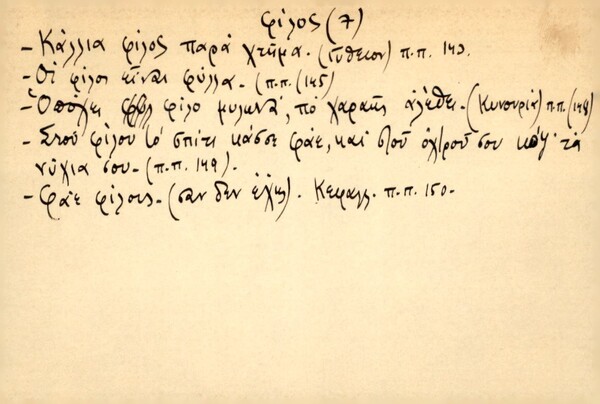 φίλος (7)
- Κάλλια φίλος παρὰ χτῆμα. (Γύθειον) π.π. 143.
- Οἱ φίλοι εἶναι φύλλα. (π.π. (145)
- Ὁπὄχει φίλο μυλωνᾶ, πὸ χαραῆς ἀλέθει. (Κυνουρία) π.π. (148)
- Στοῦ φίλου τὸ σπίτι κάτσε φάε, καὶ στοῦ ὀχτροῦ σου κόψ' τὰ
νύχια σου. (π.π. 149).
- Φάε φίλους. (σαν δεν ἔχῃς). Κεφαλλ. π.π. 150.